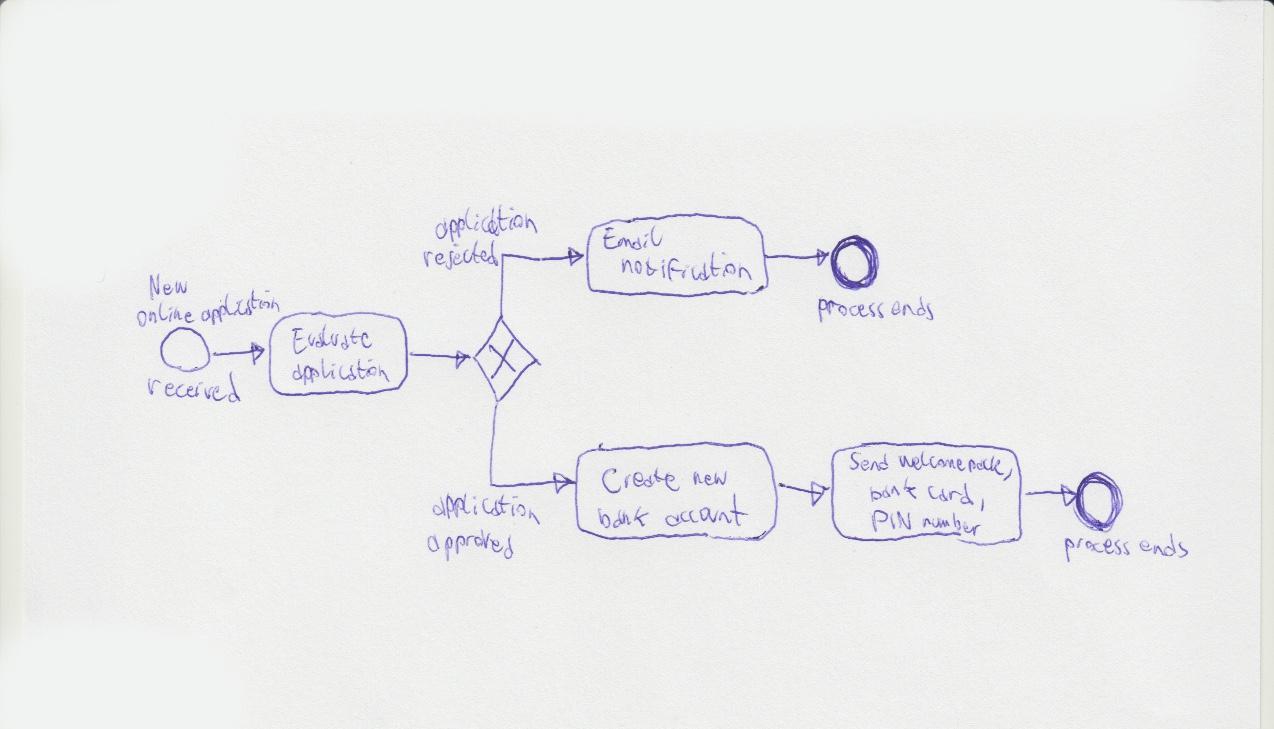 New
online application
received
Evaluate
application
application
rejected
Email
notification
process ends
application
approved
Create new
bank account
Send welcome pack,
bank card,
PIN number
process ends